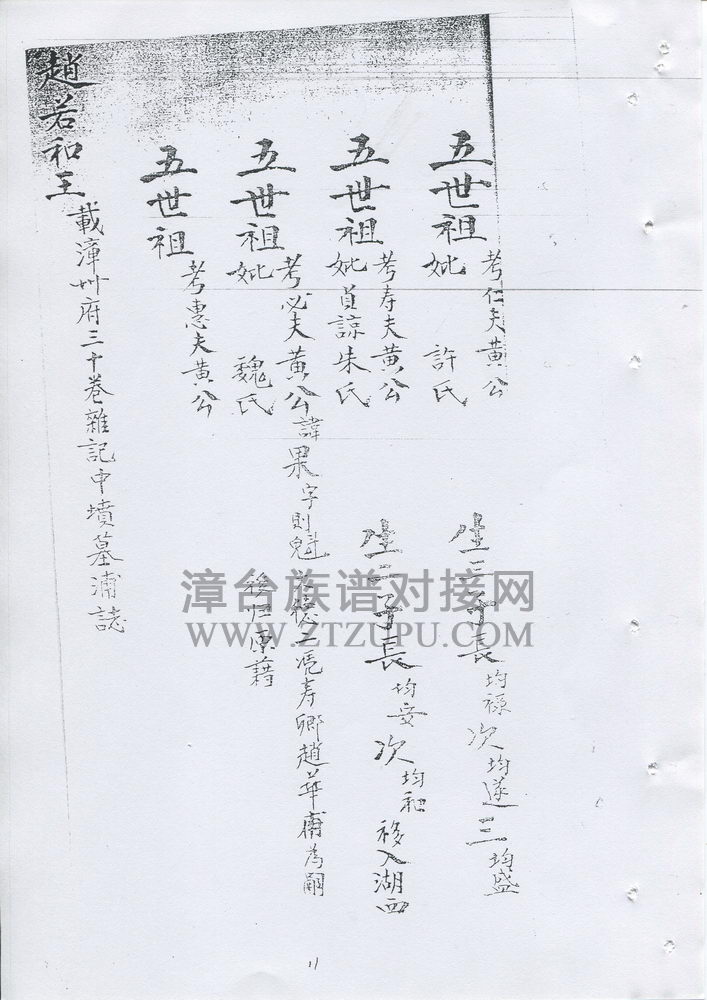 五世祖 考仁夫黄公
妣 許氏
生三子長均祿次均遂三均盛
五世祖 考寿夫黄公
妣貞諒朱氏
生二子長均安次均和移入湖西
五世祖 考必夫黄公諱果字則魁 寿卿趙華 為嗣
妣 魏氏
後归原藉
五世祖 考惠夫黄公
趙若和王 載漳州府三十卷雜記中墳墓浦誌
漳台族谱对接网
WWW.ZTZUPU.COM
11